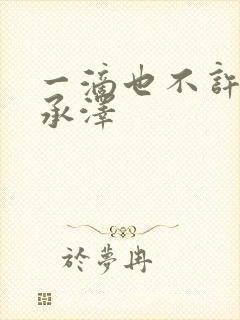 一滴也不許
承澤
於夢冉